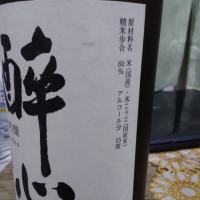 原材料名 米(国産)・米こうじ(国産米)
精米歩合 60% アルコール分 15度
酔心